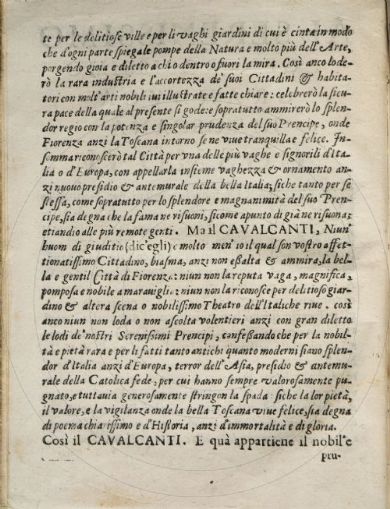 te per le delitiose ville e per li vaghi giardini di cui è cinta in modo
che d'ogni parte spiega le pompe della Natura e molto più dell'Arte,
porgendo gioia e diletto a chi o dentro o fuori la mira. Così anco lode-
rò la rara industria e l'accortezza de' suoi Cittadini & habita-
tori con molt'arti nobili iui illustrate e fatte chiare: celebrerò la sicu-
ra pace della quale al presente si gode: e sopratutto ammirerò lo splen-
dor regio con la potenza e singolar prudenza del suo Prencipe, onde
Fiorenza anzi la Toscana intorno se ne viue tranquilla e felice. In-
somma riconoscerò tal Città per vna delle più vaghe e signorili d'Ita
lia o d'Europa, con appellarla insieme vaghezza & ornamento an-
zi nuouo presidio & antemurale della bella Italia; siche tanto per se
stessa, come sopratutto per lo splendore e magnanimità del suo Pren-
cipe, sia degna che la fama ne risuoni, sicome apunto di già ne risuona;
etiandio alle più remote genti. Ma il CAVALCANTI, Niun'
huom di giuditio (dic'egli) e molto men' io il qual son vostro affet-
tionatissimo Cittadino, biasma, anzi non esalta & ammira, la bel-
la e gentil Città di Fiorenza: niun non la reputa vaga, magnifica,
pomposa e nobile a marauigli.: niun non la riconosce per delitioso giar-
dino & altera scena o nobilissimo Theatro dell'Italiche riue, così
anco niun non loda o non ascolta volentieri anzi con gran diletto
le lodi de' nostri Serenissimi Prencipi, confessando che per la nobil-
tà e pietà rara e per li fatti tanto antichi quanto moderni siano splen-
dor d'Italia anzi d'Europa, terror dell'Asia, presidio & antemu-
rale della Catolica fede; per cui hanno sempre valorosamente pu-
gnato, e tuttauia generosamente stringon la spada siche la lor pietà,
il valore, e la vigilanza onde la bella Toscana viue felice, sia degna
di poema chiarissimo e d'Historia, anzi d'immortalità e di gloria.
Così il CAVALCANTI. E quà appartiene il nobil'e
pru-